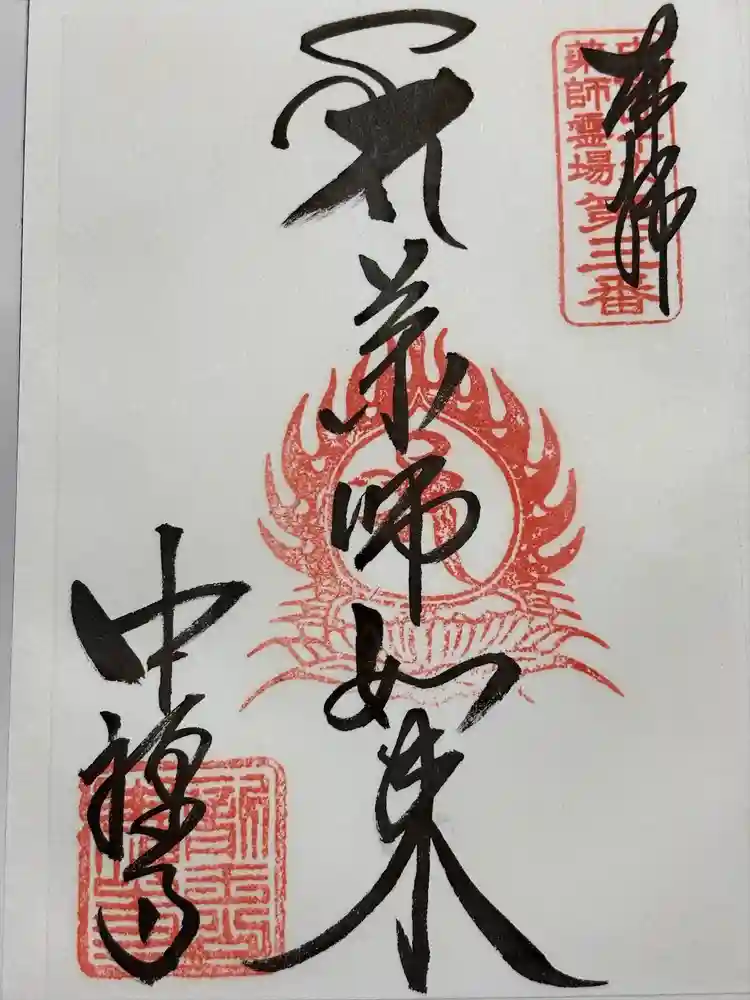 奉拝
薬師霊場
第三番
薬師如来
中禅寺